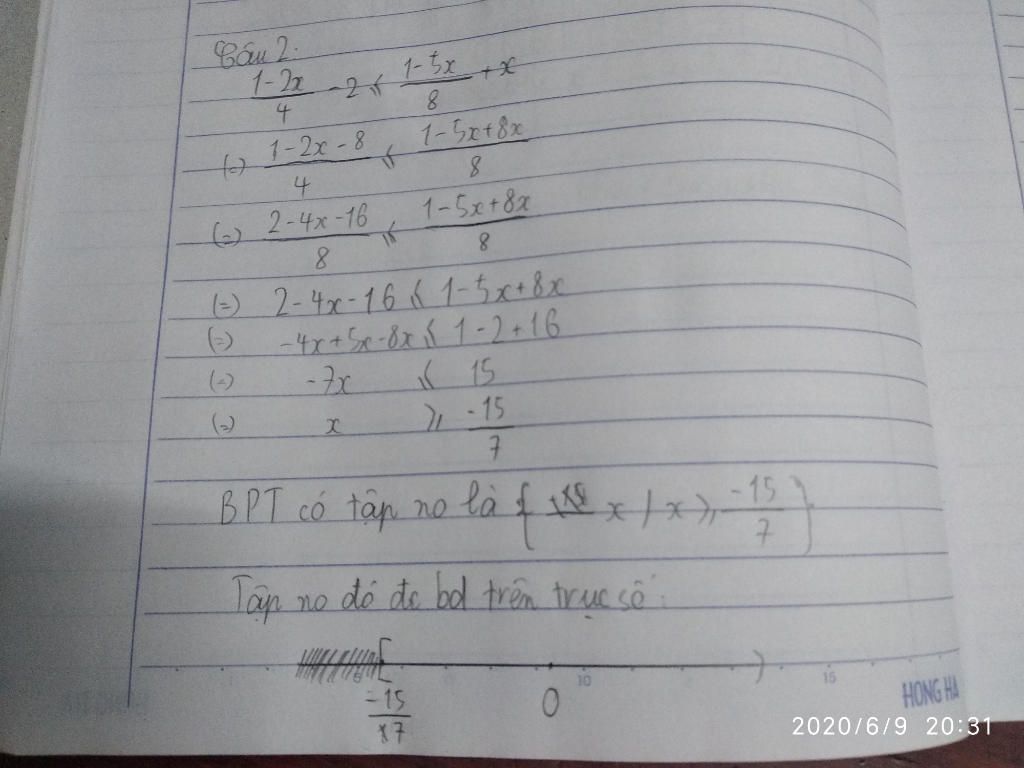 Câu 2:
\frac{1-2x}{4} - 2 ≤ \frac{1-5x}{8} + x
(=) \frac{1-2x-8}{4} ≤ \frac{1-5x+8x}{8}
(=) \frac{2-4x-16}{8} ≤ \frac{1-5x+8x}{8}
(=) 2-4x-16 ≤ 1-5x+8x
(=) -4x+5x-8x ≤ 1-2+16
(=) -7x ≤ 15
(=) x ≥ \frac{-15}{7}
BPT có tập no là { x / x ≥ \frac{-15}{7} }
Tập no đó đc bd trên trục số:
[ )
10 15
\frac{-15}{7} 0
HONG HA
2020/6/9 20:31